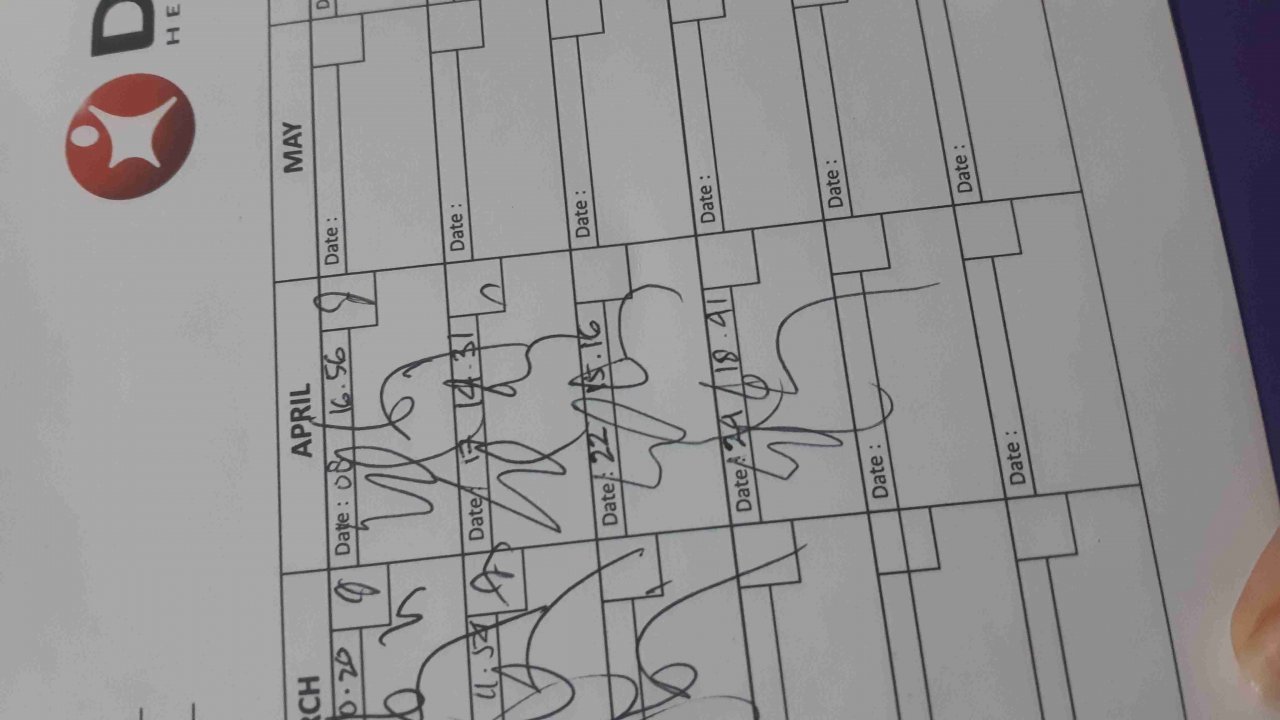 D
HE
RCH
APRIL
MAY
0.20
Date : 08 16.56
Date :
D
11.54
Date : 17 14.31
Date :
Date : 22 15.16
Date :
Date : 29 18.41
Date :
Date :
Date :
Date :
Date :